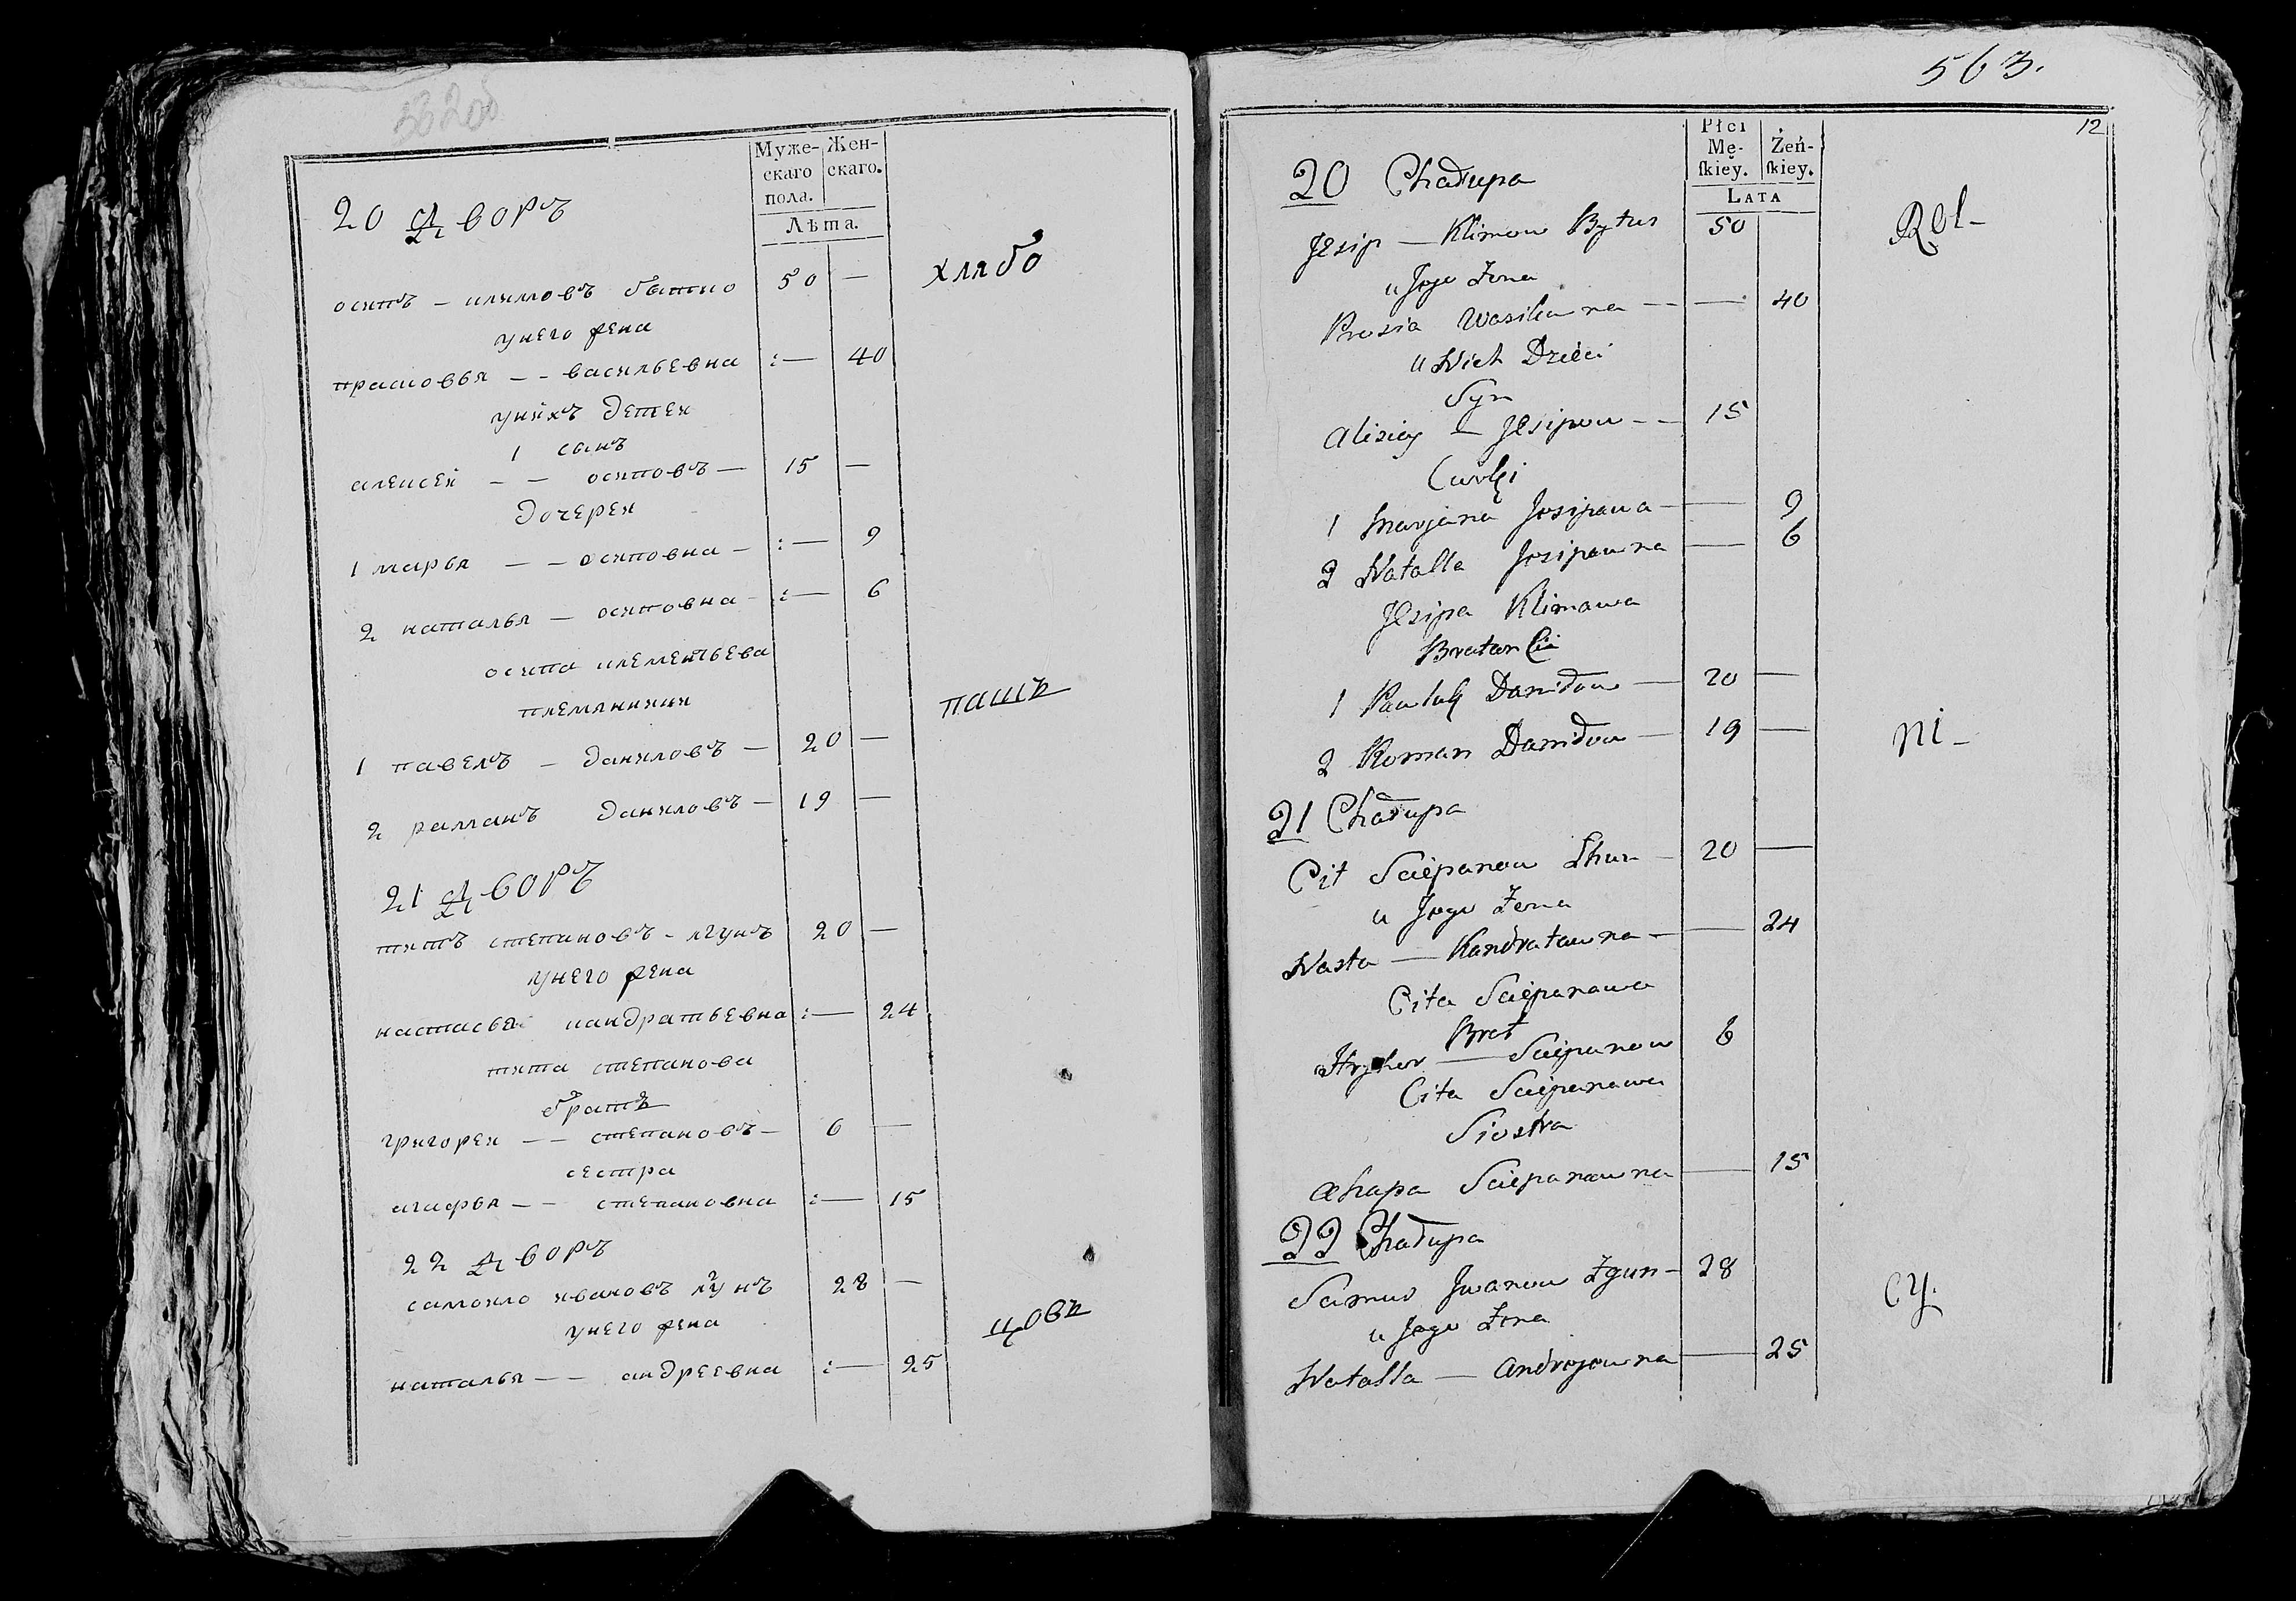 Муже-
скаго
пола.
Жен-
скаго.
Лѣта.
20 Дворъ
осипъ — климовъ 50 — хлябо
унего жена
прасковья — — васильевна :— 40
унихъ детей
1 сынъ
алексей — — осиповъ — 15 —
дочерей
1 марья — — осиповна — :— 9
2 наталья — осиповна — :— 6
осипа клементьева
племянники
пашъ
1 павелъ — даниловъ — 20 —
2 раманъ даниловъ — 19 —
21 Дворъ
титъ степановъ - лгунъ 20 —
унего жена
настасья кандратьевна :— 24
тита степанова
братъ
григорей — — степановъ — 6 —
сестра
агафья — — степановна :— 15
22 Дворъ
самойло ивановъ лгунъ 28 —
унего жена
цовъ
наталья — — андреевна :— 25
563.
12
Płci
Mę-
ſkiey.
Żeń-
ſkiey.
LATA
20 Chałupa
Jesip — Klimow Bytus 50 Rol-
u Jego Żona
Prosia Wasilewna — — 40
u Nich Dzieci
Syn
Alisiey — Jesipow - - 15
Curki
1 Marjana Josipawa — — 9
2 Natalla Josipawna — 6
Jesipa Klimawa
Bratanki
1 Pawluk Daniłow — 20 —
2 Roman Daniłow — 19 — ni-
21 Chałupa
Cit Sciepanow Lhun — 20 —
u Jego Żona
Nasta — Kandratawna — — 24
Cita Sciepanawa
Brat
Hryhor — Sciepanow 6
Cita Sciepanawa
Siostra
Ahapa Sciepanawna — 15
22 Chałupa
Samus Jwanow Lgun - 28 cy.
u Jego Żona
Natalla — Androjowna — 25